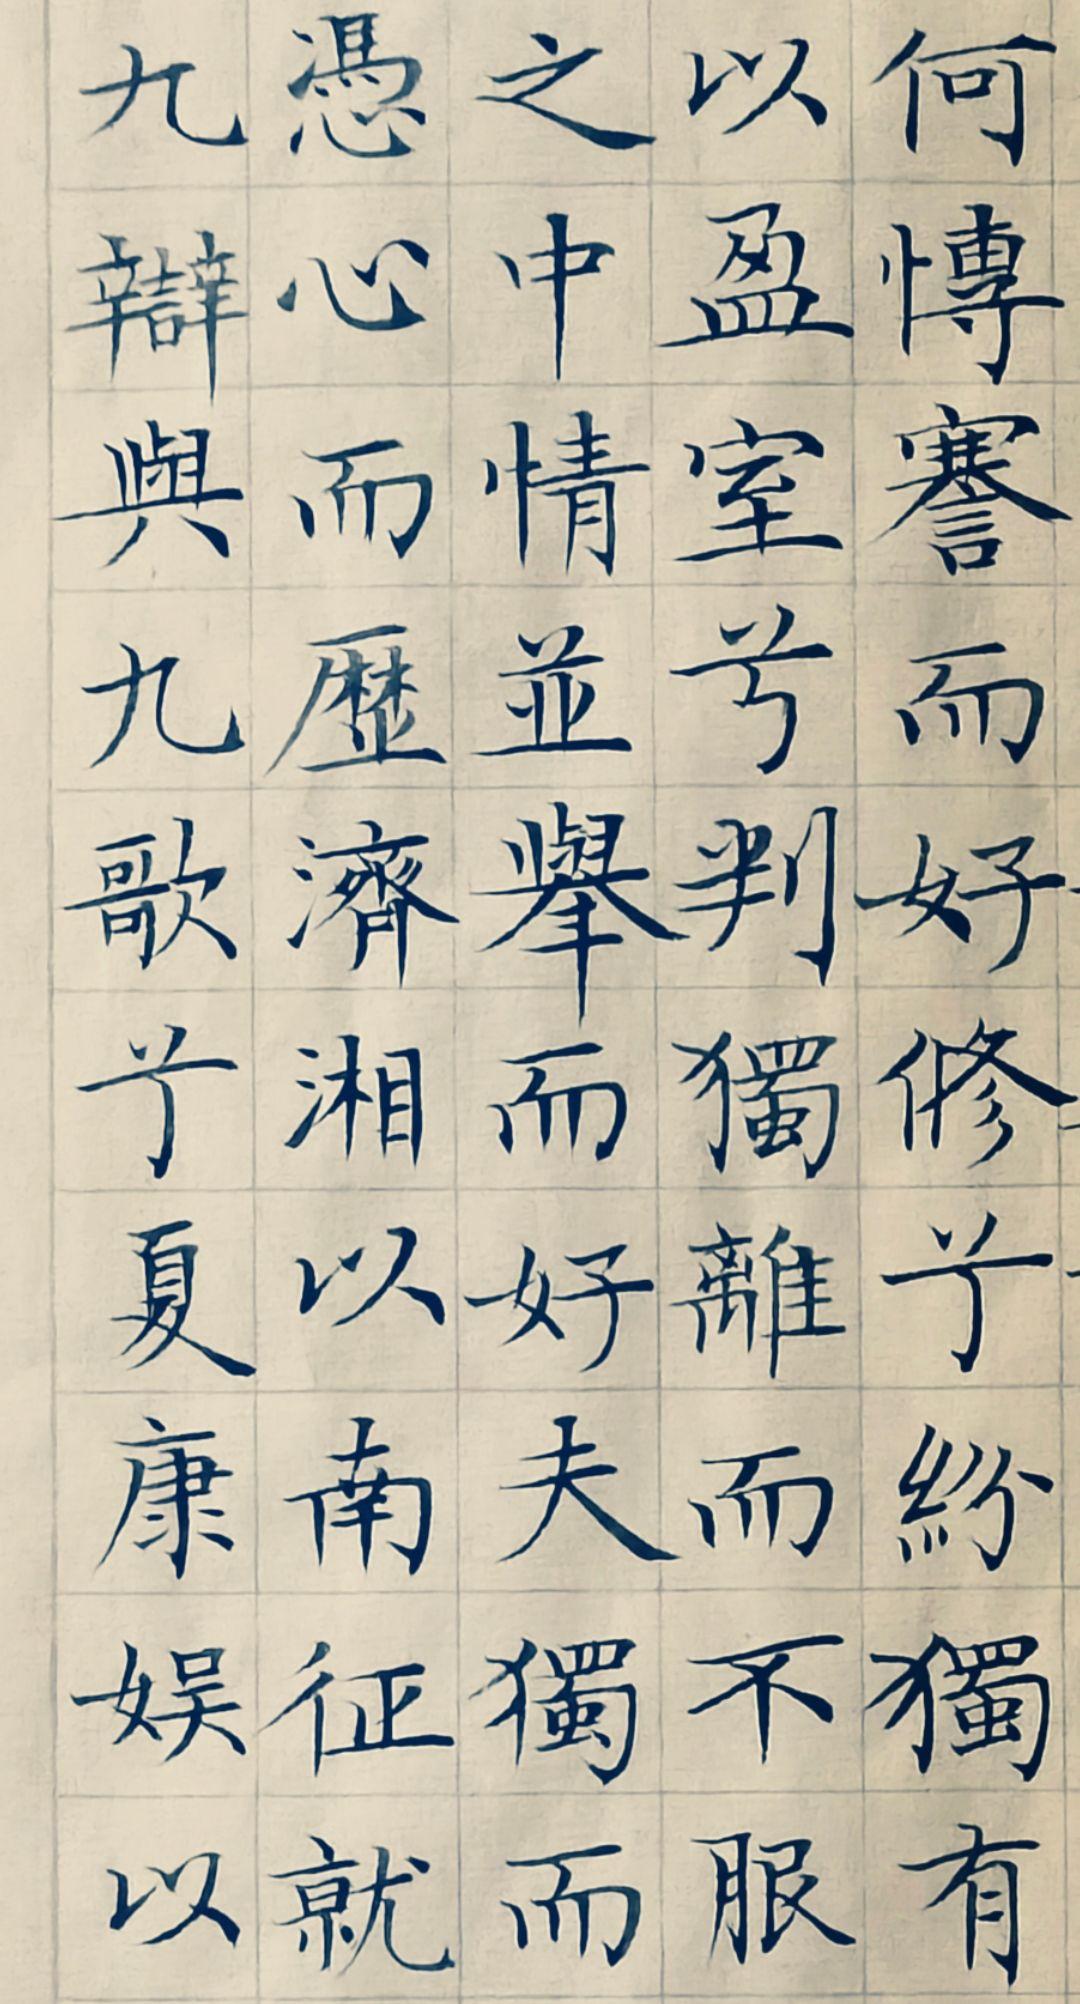 何博謇而好修兮紛獨有
以盈室兮判獨離而不服
之中情並舉而好夫獨而
憑心而歷濟湘以南征就
九辯與九歌兮夏康娛以